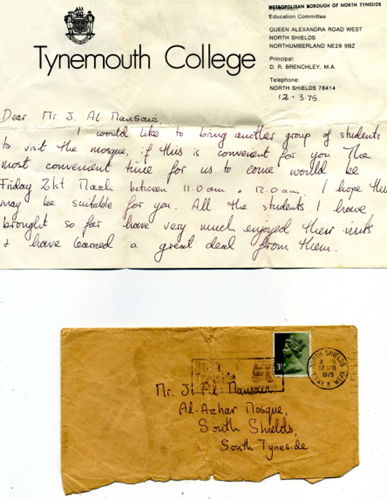 METROPOLITAN BOROUGH OF NORTH TYNESIDE
Education Committee
QUEEN ALEXANDRA ROAD WEST
NORTH SHIELDS
NORTHUMBERLAND NE29 9BZ
Principal:
D. R. BRENCHLEY, M.A.
Telephone:
NORTH SHIELDS 78414
Tynemouth College
12·3·75
Dear Mr. J. Al Mansouri
I would like to bring another group of students
to visit the mosque, if this is convenient for you. The
most convenient time for us to come would be
Friday 21st March between 11.0am & 12.0am. I hope this
may be suitable for you. All the students I have
brought so far have very much enjoyed their visits
& have learned a great deal from them.
NORTH SHIELDS
1975
TYNE & WEAR
Mr. J. Al-Mansouri
Al-Azhar Mosque,
South Shields,
South Tyneside